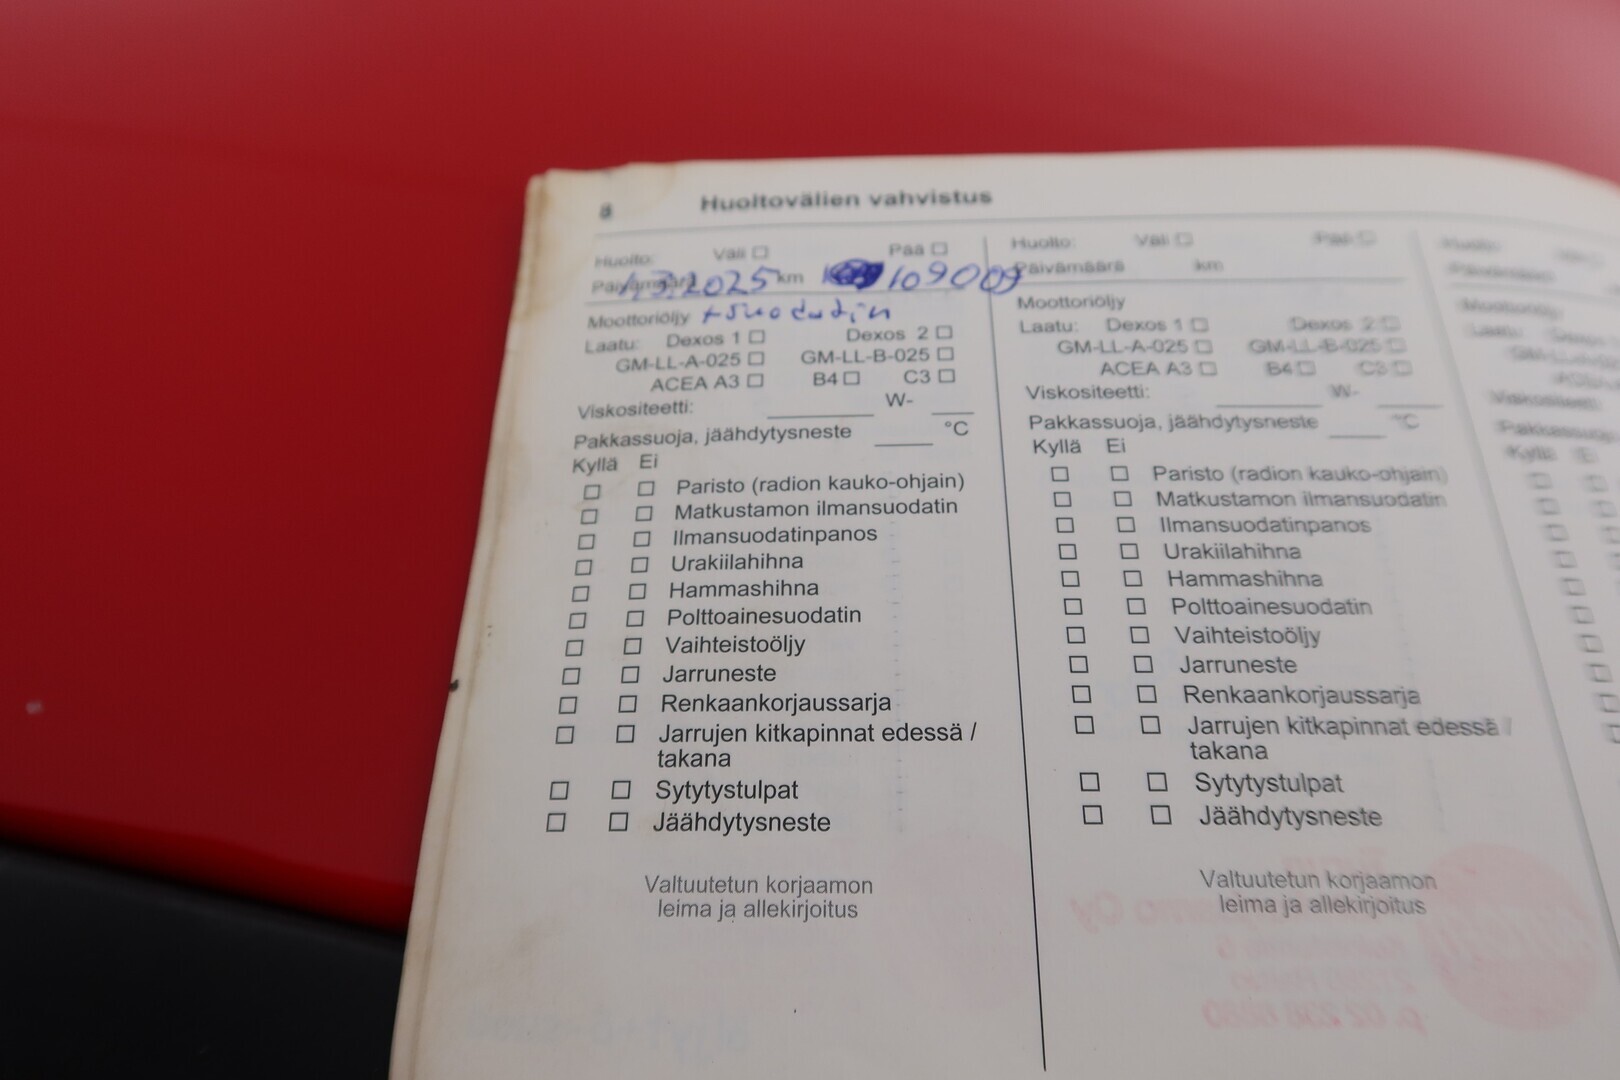 8 Huoltovälien vahvistus
Huolto: Väli Pää
Päivämäärä 1.3.2025 km 109009
Moottoriöljy + suodatin
Laatu: Dexos 1 Dexos 2
GM-LL-A-025 GM-LL-B-025
ACEA A3 B4 C3
Viskositeetti: W-
Pakkassuoja, jäähdytysneste °C
Kyllä Ei
Paristo (radion kauko-ohjain)
Matkustamon ilmansuodatin
Ilmansuodatinpanos
Urakiilahihna
Hammashihna
Polttoainesuodatin
Vaihteistoöljy
Jarruneste
Renkaankorjaussarja
Jarrujen kitkapinnat edessä /
takana
Sytytystulpat
Jäähdytysneste
Valtuutetun korjaamon
leima ja allekirjoitus
Huolto: Väli Pää
Päivämäärä km
Moottoriöljy
Laatu: Dexos 1 Dexos 2
GM-LL-A-025 GM-LL-B-025
ACEA A3 B4 C3
Viskositeetti: W-
Pakkassuoja, jäähdytysneste °C
Kyllä Ei
Paristo (radion kauko-ohjain)
Matkustamon ilmansuodatin
Ilmansuodatinpanos
Urakiilahihna
Hammashihna
Polttoainesuodatin
Vaihteistoöljy
Jarruneste
Renkaankorjaussarja
Jarrujen kitkapinnat edessä /
takana
Sytytystulpat
Jäähdytysneste
Valtuutetun korjaamon
leima ja allekirjoitus
Huolto:
Päivämäärä
Moottoriöljy
Laatu:
Viskositeetti:
Kyllä Ei